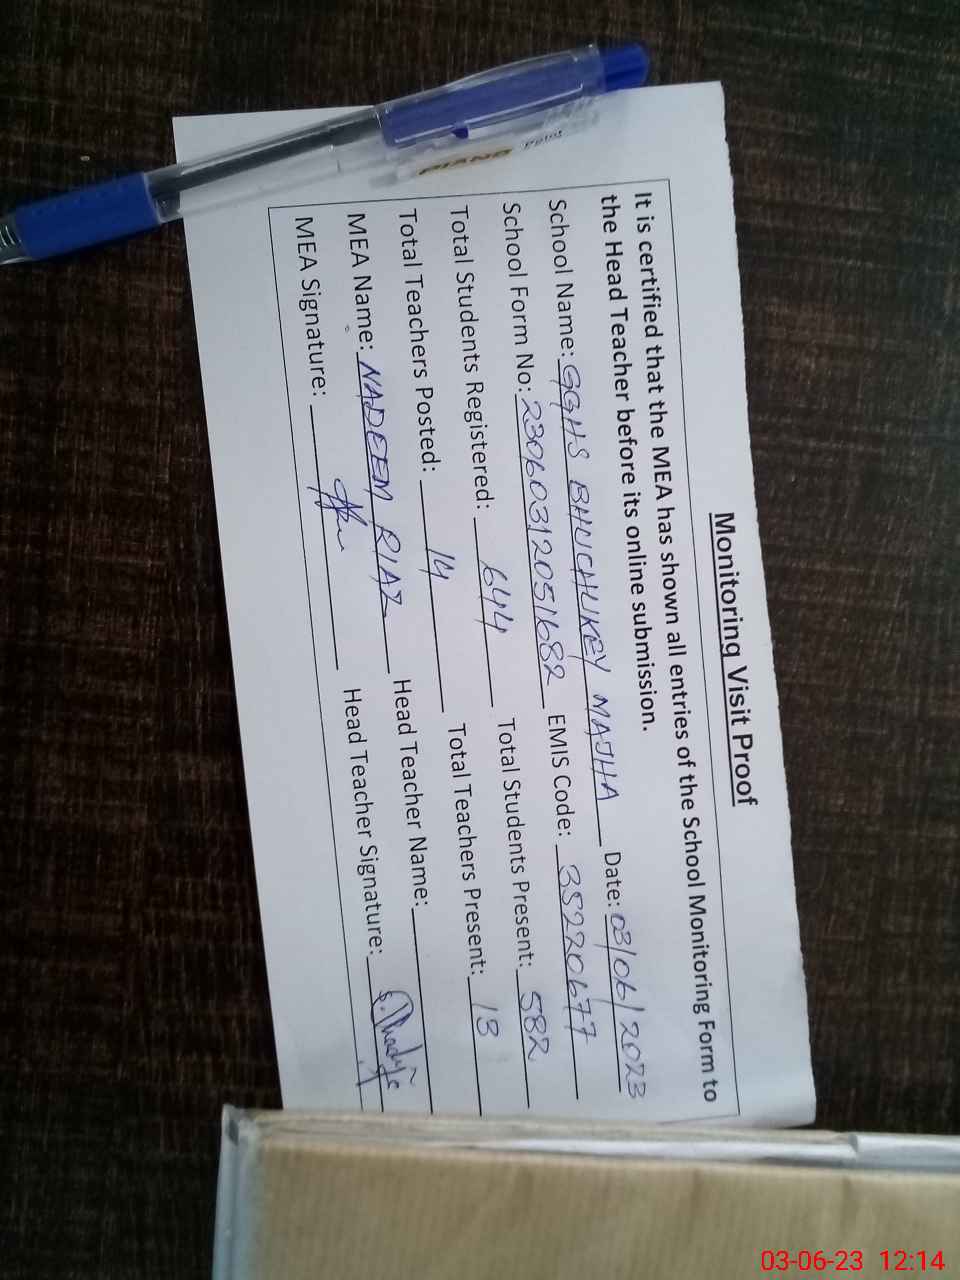 Monitoring Visit Proof
It is certified that the MEA has shown all entries of the School Monitoring Form to
the Head Teacher before its online submission.
School Name: GGHS BHUCHUKEY MAJHA Date: 03/06/2023
School Form No: 23060312051682 EMIS Code: 35220677
Total Students Registered: 644 Total Students Present: 582
Total Teachers Posted: 14 Total Teachers Present: 13
MEA Name: NADEEM RIAZ Head Teacher Name:
MEA Signature: Head Teacher Signature:
PIANO Point
03-06-23 12:14